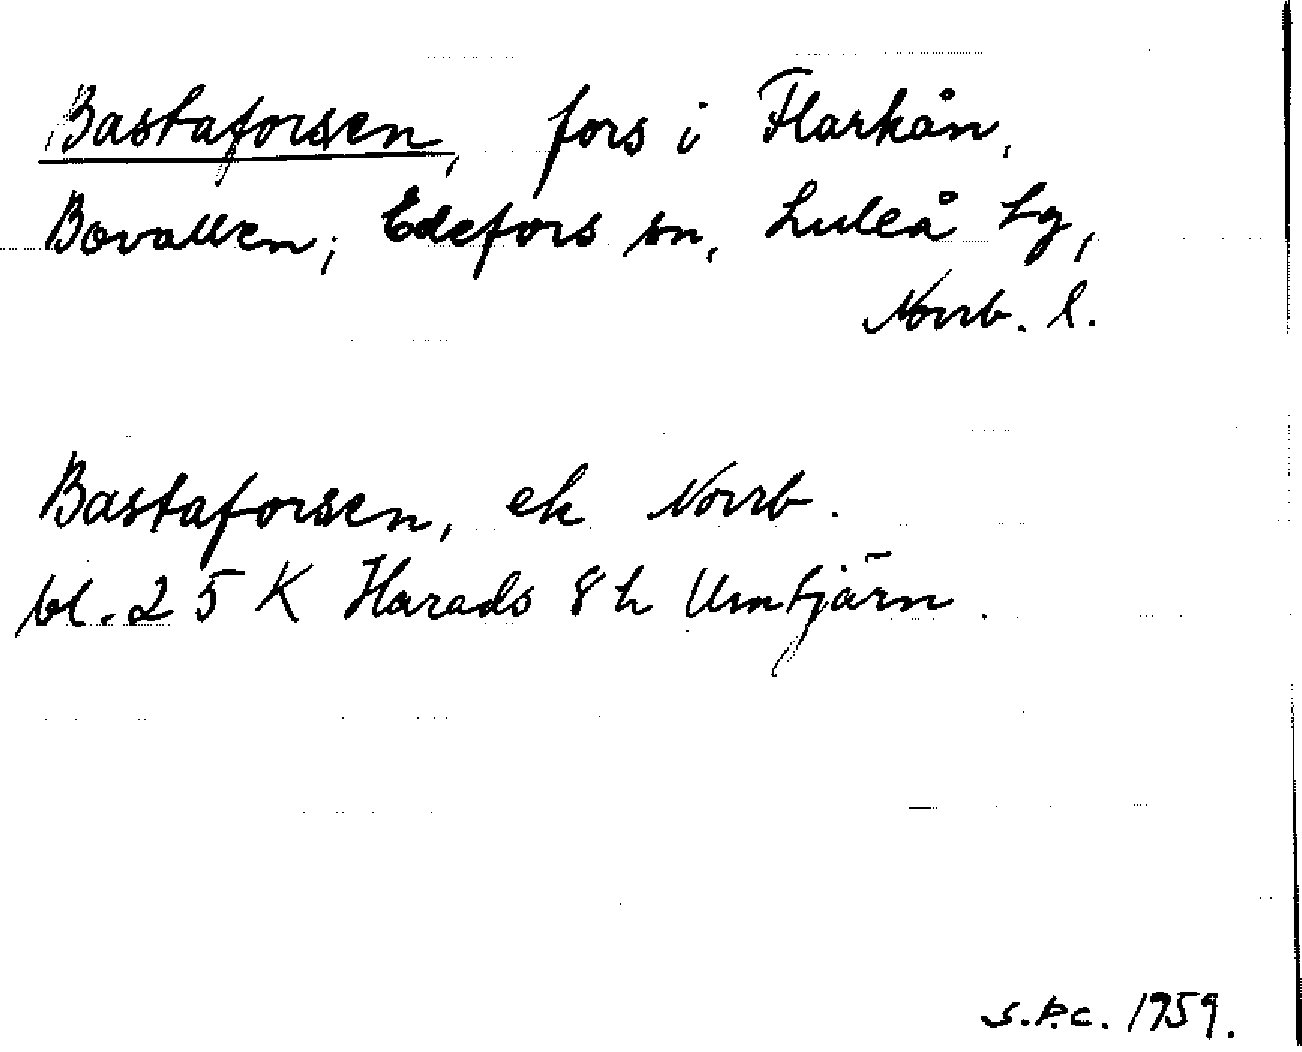 Bastaforsen, fors i Flarkån,
Bovallen, Edefors sn, Luleå tg,
Norrb. l.
Bastaforsen, ek Norrb.
bl. 25 K Harads 8h Umtjärn.
S.P.C. 1959.